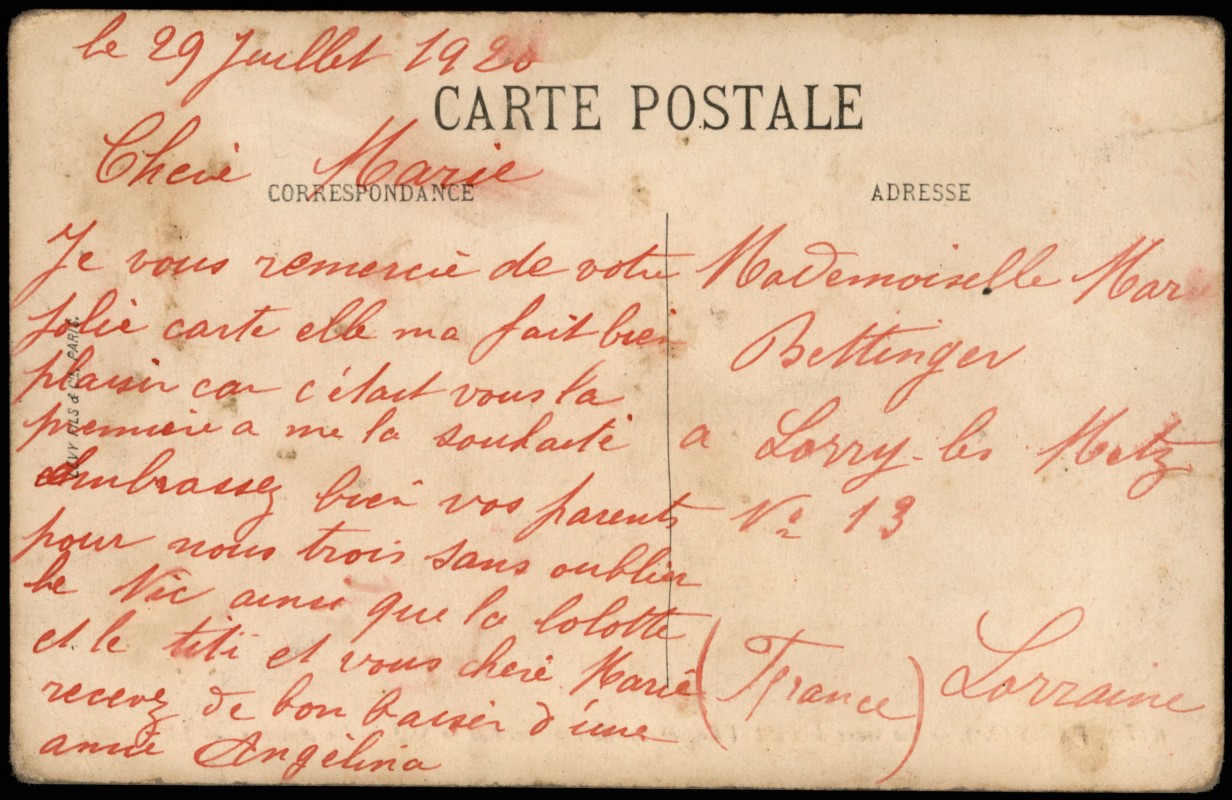 le 29 Juillet 1920
CARTE POSTALE
Cherie Marie
CORRESPONDANCE
Je vous remercie de votre
jolie carte elle ma fait bien
plaisir car c'était vous la
premiere a me la souhaité
embrassez bien vos parents
pour nous trois sans oublier
le Nic ainsi que la lolotte
et le titi et vous cherie Marie
recevez de bon baiser d'une
amie Angélina
LEVY FILS & Cie, PARIS.
ADRESSE
Mademoiselle Marie
Bettinger
a Lorry-les Metz
No 13
(France) Lorraine